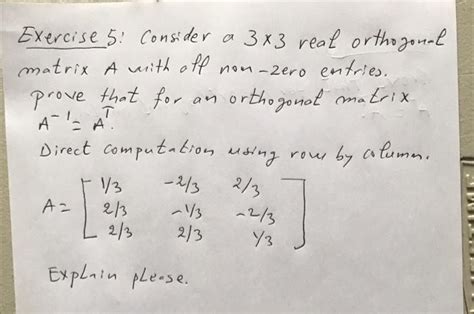 Exercise 5: Consider a 3x3 real orthogonal
matrix A with all non-zero entries.
prove that for an orthogonal matrix
A⁻¹ = Aᵀ.
Direct computation using row by column.
A = [ 1/3 -2/3 2/3
2/3 -1/3 -2/3
2/3 2/3 1/3 ]
Explain please.